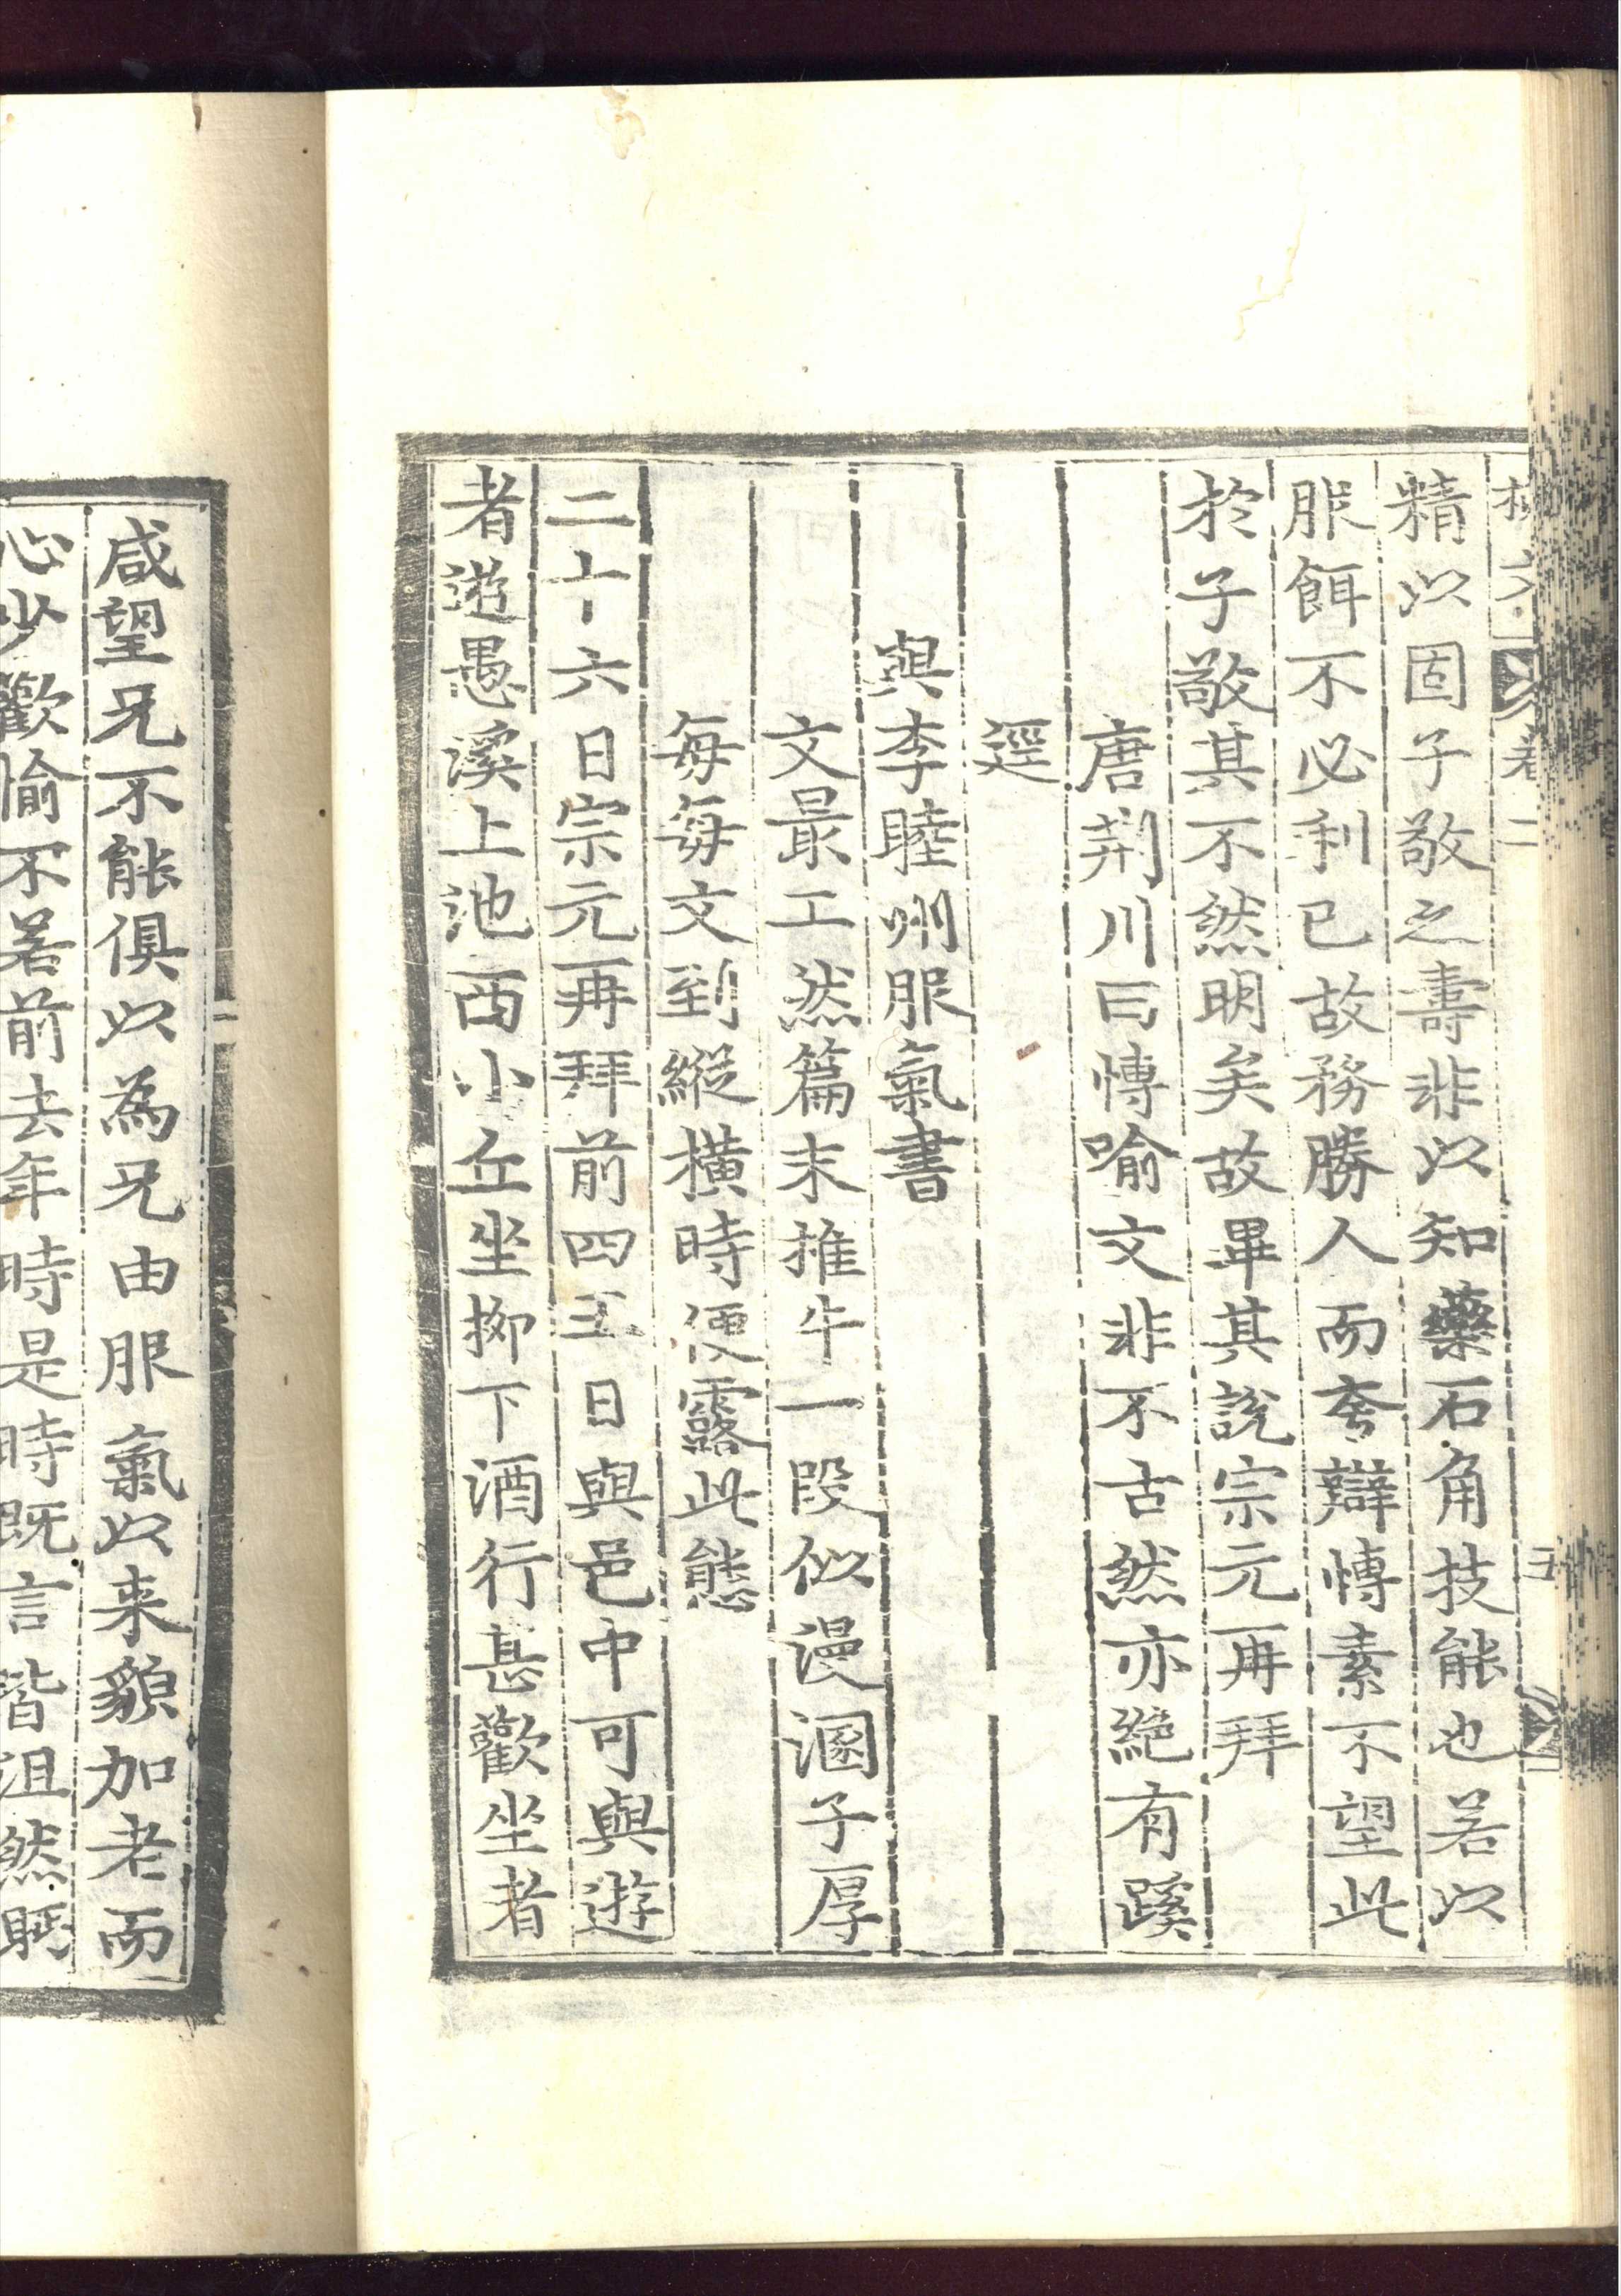 卷二
精以固子敬之壽非以知藥石角技能也若以
服餌不必利已故務勝人而夸辯博素不望此
於子敬其不然明矣故畢其說宗元再拜
唐荆川曰博喻文非不古然亦絕有蹊
逕
與李睦州服氣書
文最工然篇末推牛一段似漫溷子厚
每每文到縱橫時便露此態
二十六日宗元再拜前四五日與邑中可與遊
者遊愚溪上池西小丘坐栁下酒行甚歡坐者
咸望兄不能俱以為兄由服氣以来貌加老而
心少歡愉不若前去年時是時既言皆沮然眄